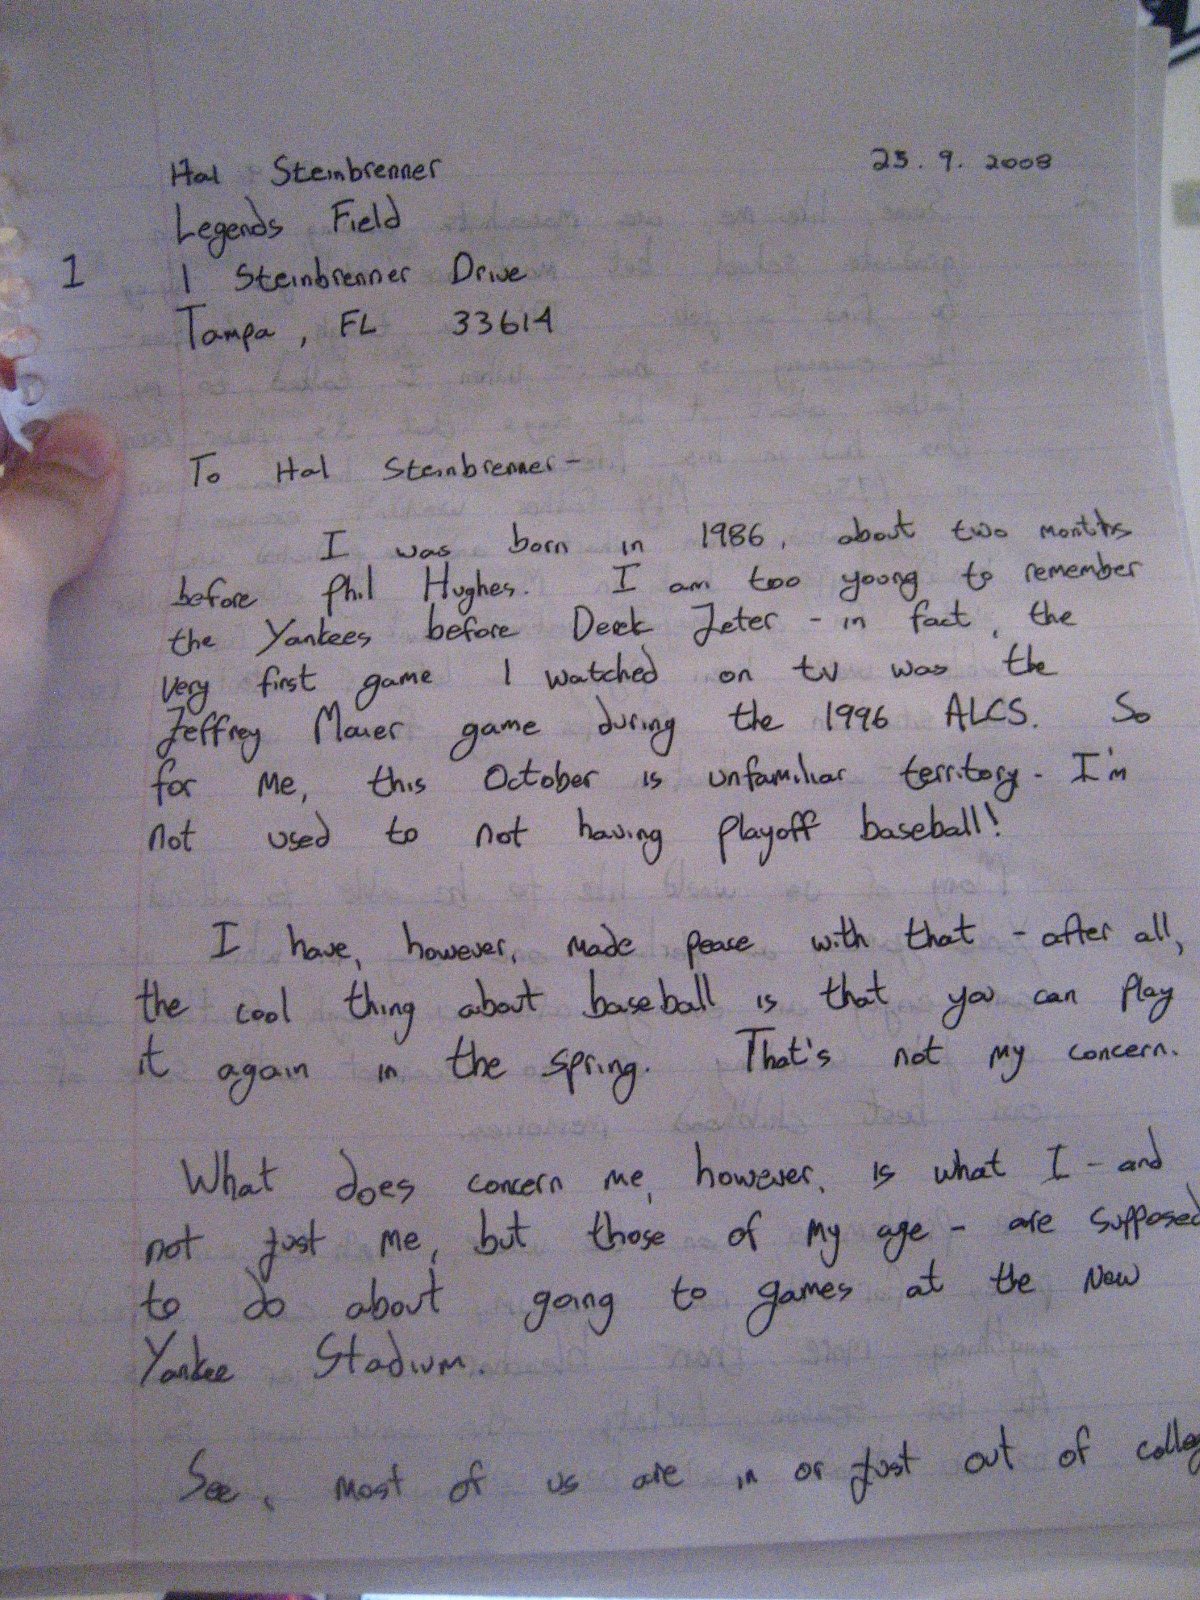 Hal Steinbrenner 25.9.2008
Legends Field
1
1 Steinbrenner Drive
Tampa, FL 33614
To Hal Steinbrenner -
I was born in 1986, about two months
before Phil Hughes. I am too young to remember
the Yankees before Derek Jeter - in fact, the
very first game I watched on tv was the
Jeffrey Maier game during the 1996 ALCS. So
for me, this October is unfamiliar territory - I'm
not used to not having playoff baseball!
I have, however, made peace with that - after all,
the cool thing about baseball is that you can play
it again in the spring. That's not my concern.
What does concern me, however, is what I - and
not just me, but those of my age - are supposed
to do about going to games at the New
Yankee Stadium.
See, most of us are in or just out of colleg